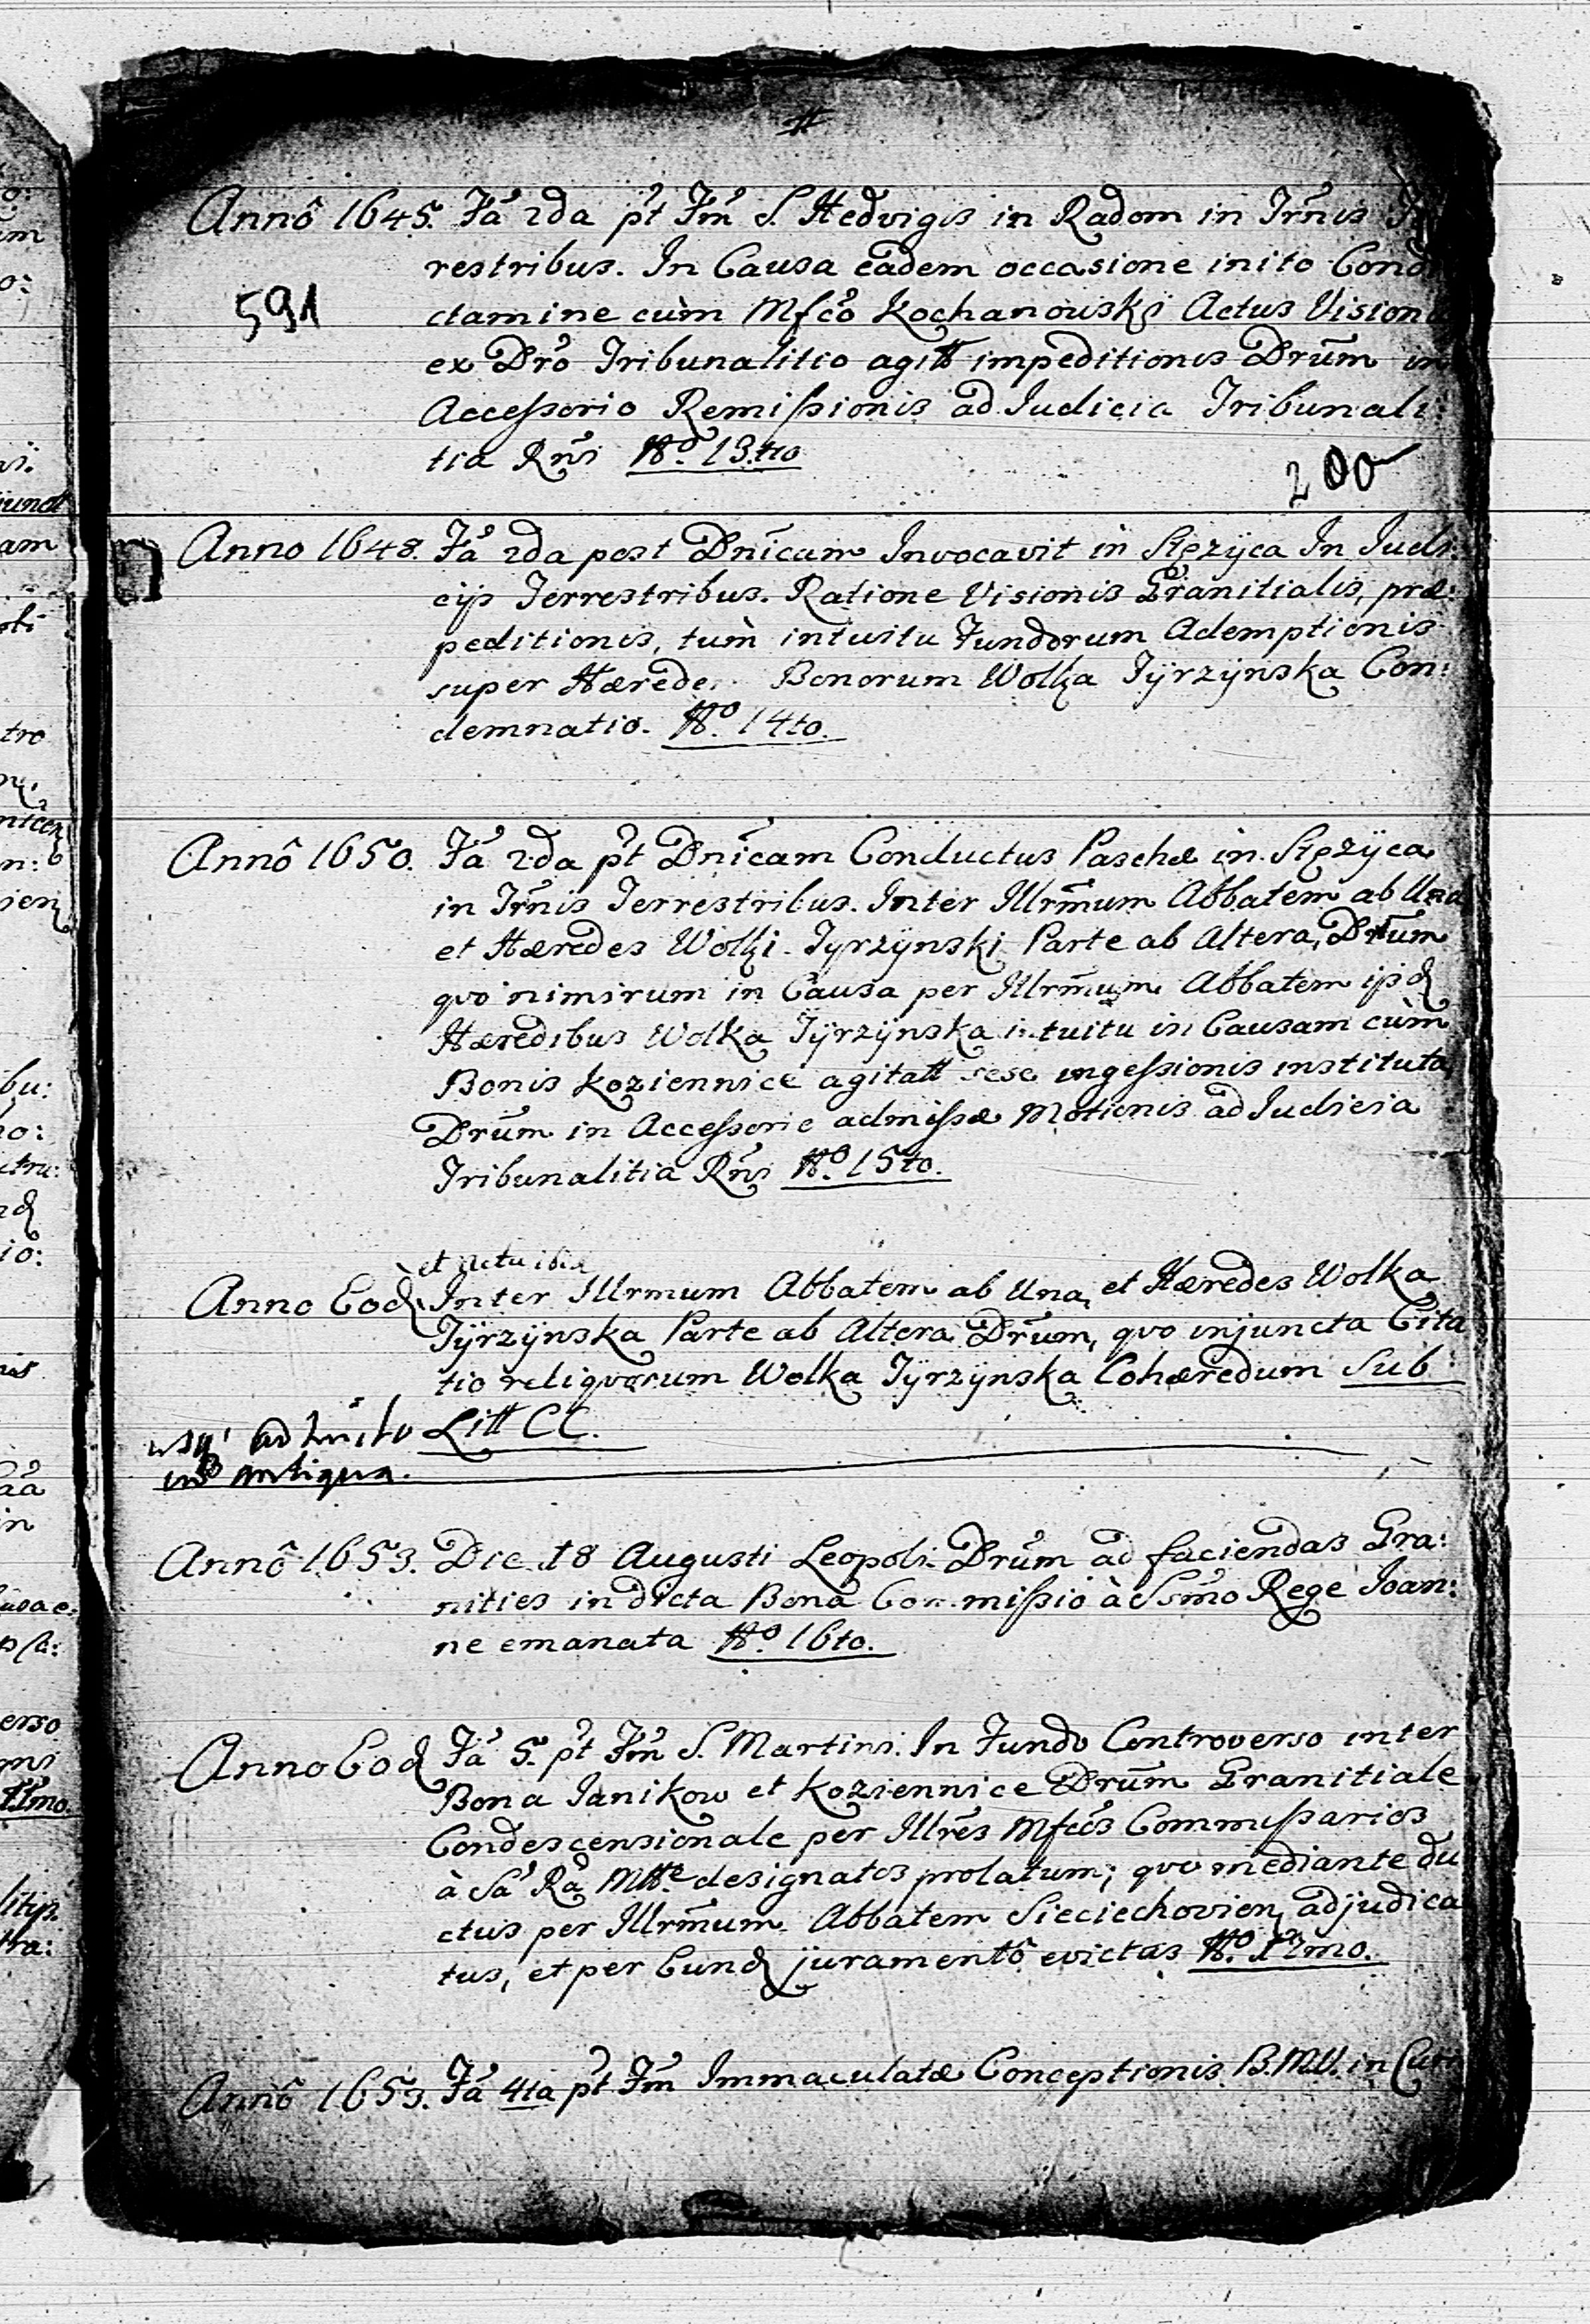 Annô 1645. Fa 2da pt Fm S. Hedvigis in Radom in Trnis
restribus. In Causa eadem occasione inito Condi
591
ctamine cùm Mfco Kochanowski Actus Vision
ex Dro Tribunalitio agitt impeditionis Drum in
Accessorio Remissionis ad Iudicia Tribunali:
tia Rns No. 13tio
200
Anno 1648. Fa 2da post Dnicam Invocavit in Stęzÿca In Iudi:
cijs Terrestribus. Ratione Visionis Granitialis, præ:
peditionis, tum intuitu Fundorum Ademptionis
super Hærede. Bonorum Wolka Tÿrzÿnska Con:
demnatio. No. 14to.
Annô 1650. Fa 2da pt Dnicam Conductus Paschæ in Stęzÿca
in Trnis Terrestribus. Inter Illrmum Abbatem ab Una
et Hæredes Wolki Tyrzÿnski Parte ab Altera, Drum
quo nimirum in Causa per Illrmum Abbatem ipsd
Hæredibus Wolka Tÿrzÿnska intuitu in Causam cùm
Bonis Koziennice agitatt sese ingessionis instituta
Drum in Accessorie admissæ Motionis ad Iudicia
Tribunalitia Rns No. 15to.
et actu ibid
Anno Eod. Inter Illrmum Abbatem ab Una, et Hæredes Wolka
Tÿrzÿnska Parte ab Altera Drum, quo injuncta Cita
tio reliquorum Wolka Tÿrzÿnska Cohæredum Sub
Litt CC.
antiqua.
Annô 1653. Die 18 Augusti Leopoli Drum ad faciendas Gra:
nities in dicta Bona Commissio à Ssmo Rege Ioan:
ne emanata No. 16to.
Anno Eod Fa 5. pt Fm S. Martini. In Fundo Controverso inter
Bona Ianikow et Koziennice Drum Granitiale
Condescensionale per Illres Mfcos Commissarios
à Sa Ra Mtte designatos prolatum; quo mediante du
ctus per Illrmum Abbatem Sieciechovien adjudica
tus, et per Eund juramentô evictus No. 17mo.
Annô 1653. Fa 4ta pt Fm Immaculatæ Conceptionis B.M.V. in